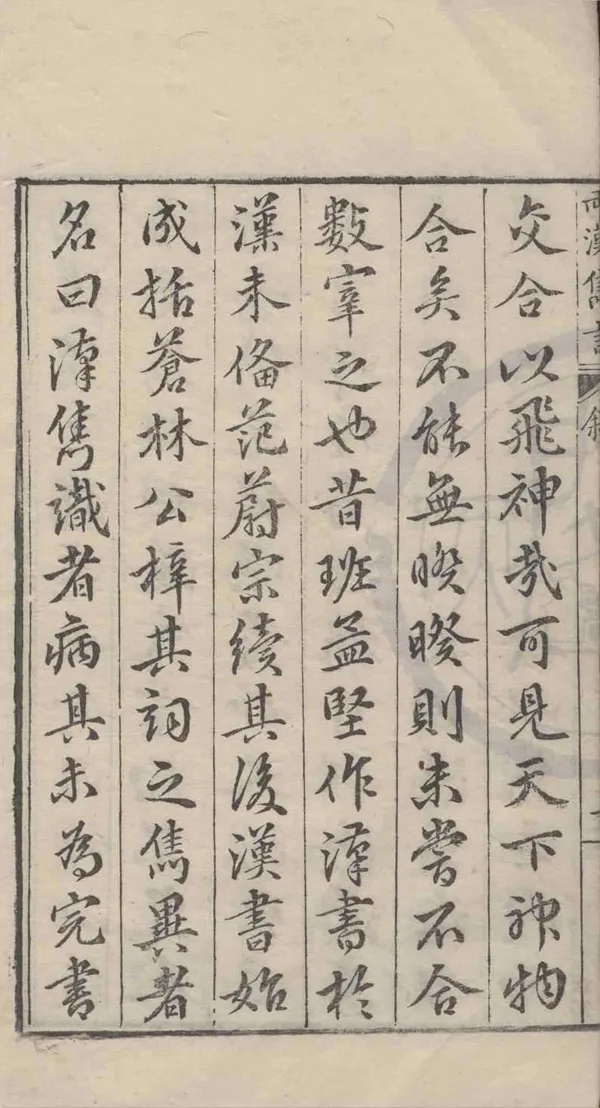 兩漢雋言 敘
交合以飛神哉可見天下神物
合矣不能無暌暌則未嘗不合
數宰之也昔班孟堅作漢書於
漢未備范蔚宗續其後漢書始
成括蒼林公梓其詞之雋異者
名曰漢雋識者病其未為完書